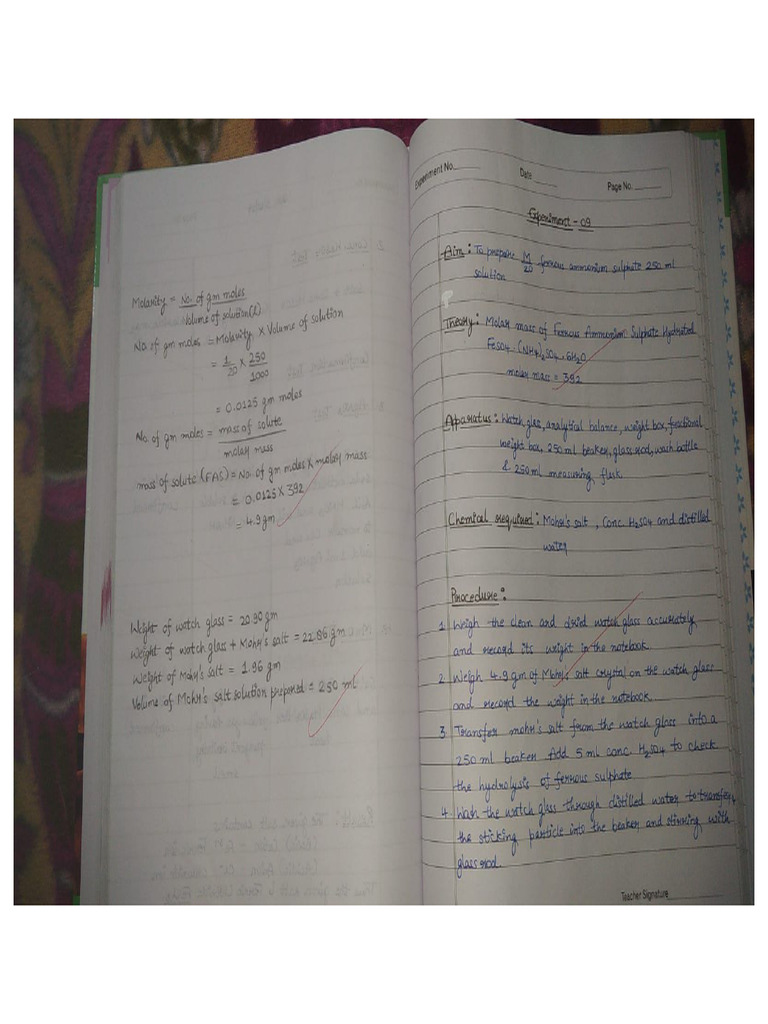 Molarity = No. of gm moles
Volume of solution(l)
No. of gm moles = Molarity x Volume of solution
= 1/20 x 250/1000
= 0.0125 gm moles
No. of gm moles = mass of solute
molar mass
mass of solute (FAS) = No. of gm moles x molar mass
= 0.0125 x 392
= 4.9 gm
Weight of watch glass = 20.90 gm
Weight of watch glass + Mohr's salt = 22.86 gm
Weight of Mohr's salt = 1.96 gm
Volume of Mohr's salt solution prepared = 250 ml
Experiment No.
Date
Page No.
Experiment - 09
Aim : To prepare M/20 ferrous ammonium sulphate 250 ml
solution
Theory : Molar mass of Ferrous Ammonium Sulphate Hydrated
FeSO4 . (NH4)2SO4 . 6H2O
molar mass = 392
Apparatus : Watch glass, analytical balance, weight box, fractional
weight box, 250 ml beaker, glass rod, wash bottle
& 250 ml measuring flask.
Chemical required : Mohr's salt , Conc. H2SO4 and distilled
water
Procedure :
1 Weigh the clean and dried watch glass accurately
and record its weight in the notebook
2 Weigh 4.9 gm of Mohr's salt crystal on the watch glass
and record the weight in the notebook
3 Transfer mohr's salt from the watch glass into a
250 ml beaker Add 5 ml conc. H2SO4 to check
the hydrolysis of ferrous sulphate
4. Wash the watch glass through distilled water to transfer
the sticking particle into the beaker and stirring with
glass rod.
Teacher Signature